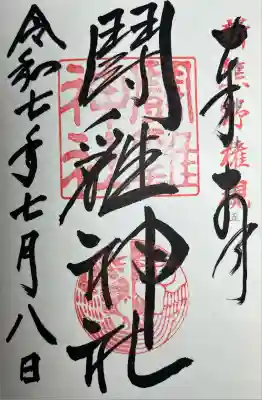 奉拝
新熊野権現
闘雞神社
闘雞神社
令和七年七月八日